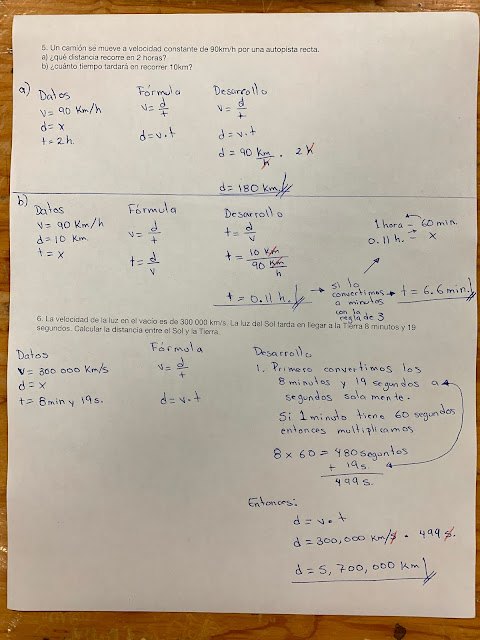 5. Un camión se mueve a velocidad constante de 90km/h por una autopista recta.
a) ¿qué distancia recorre en 2 horas?
b) ¿cuánto tiempo tardará en recorrer 10km?
a)
Datos
V = 90 Km/h
d = x
t = 2h.
Fórmula
v = d/t
d = v·t
Desarrollo
v = d/t
d = v·t
d = 90 Km/h · 2 h
d = 180 km
b)
Datos
V = 90 Km/h
d = 10 Km
t = x
Fórmula
v = d/t
t = d/v
Desarrollo
t = d/v
t = 10 Km / 90 Km/h
t = 0.11 h.
si lo
convertimos
a minutos
con la
regla de 3
1 hora - 60 min.
0.11 h. - x
t = 6.6 min.
6. La velocidad de la luz en el vacío es de 300 000 km/s. La luz del Sol tarda en llegar a la Tierra 8 minutos y 19
segundos. Calcular la distancia entre el Sol y la Tierra.
Datos
V = 300 000 Km/s
d = x
t = 8 min y 19 s.
Fórmula
v = d/t
d = v·t
Desarrollo
1. Primero convertimos los
8 minutos y 19 segundos a
segundos solamente.
Si 1 minuto tiene 60 segundos
entonces multiplicamos
8 x 60 = 480 segundos
+ 19 s.
499 s.
Entonces:
d = v·t
d = 300,000 km/s · 499 s.
d = 5,700,000 km